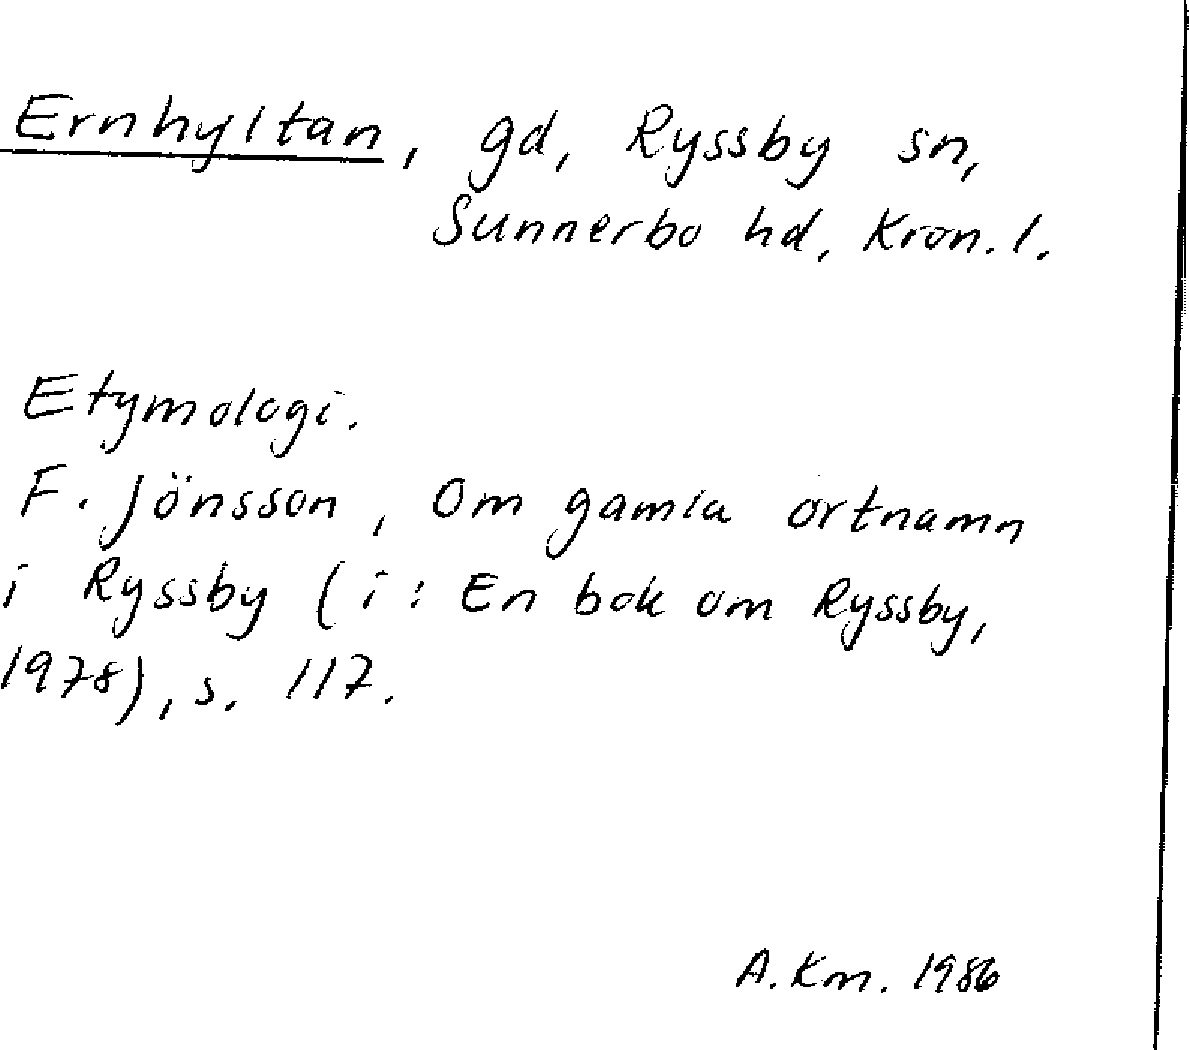 Ernhyltan, gd, Ryssby sn,
Sunnerbo hd, Kron. l.
Etymologi.
F. Jönsson, Om gamla ortnamn
i Ryssby (i: En bok om Ryssby,
1978), s. 117.
A. Km. 1986